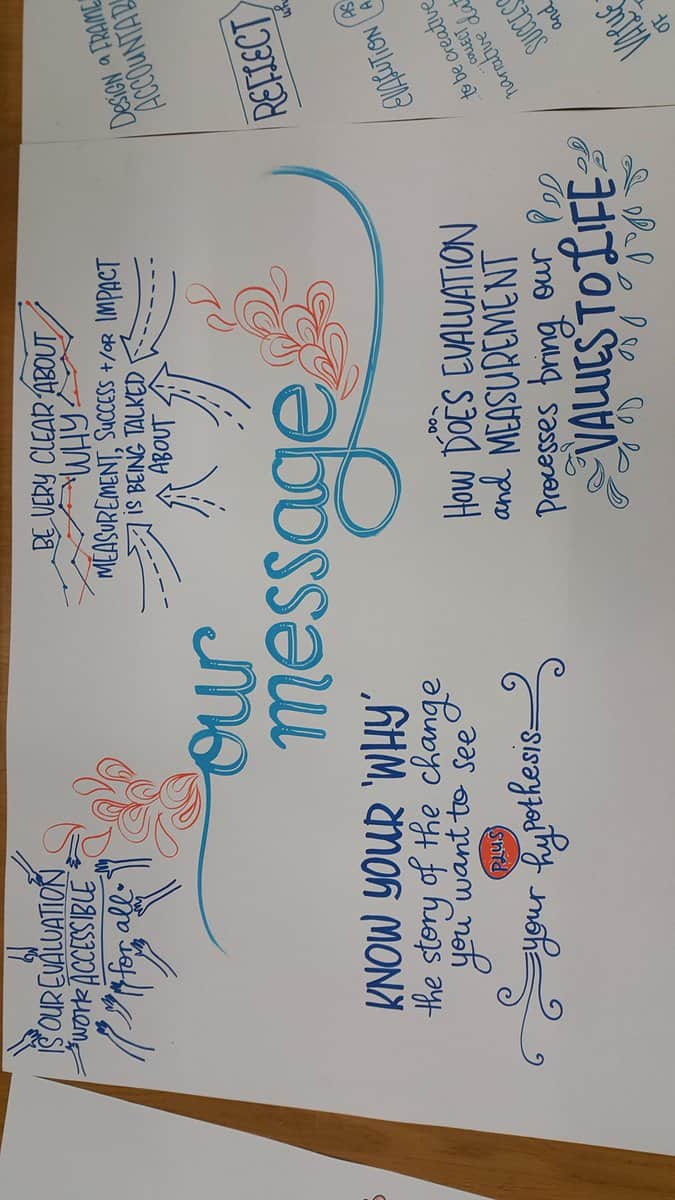 IS OUR EVALUATION
work ACCESSIBLE
for all.
BE VERY CLEAR ABOUT
WHY
MEASUREMENT, SUCCESS +/OR IMPACT
IS BEING TALKED
ABOUT
our
message
KNOW YOUR 'WHY'
the story of the change
you want to see
PLUS
your hypothesis
DO
HOW DOES EVALUATION
and MEASUREMENT
Processes bring our
VALUES TO LIFE
DESIGN a FRAME
ACCOUNTAB
REFLECT
why
EVALUTION AS A
to be creative
narrative
SUCCESS
and
VALUE
OF